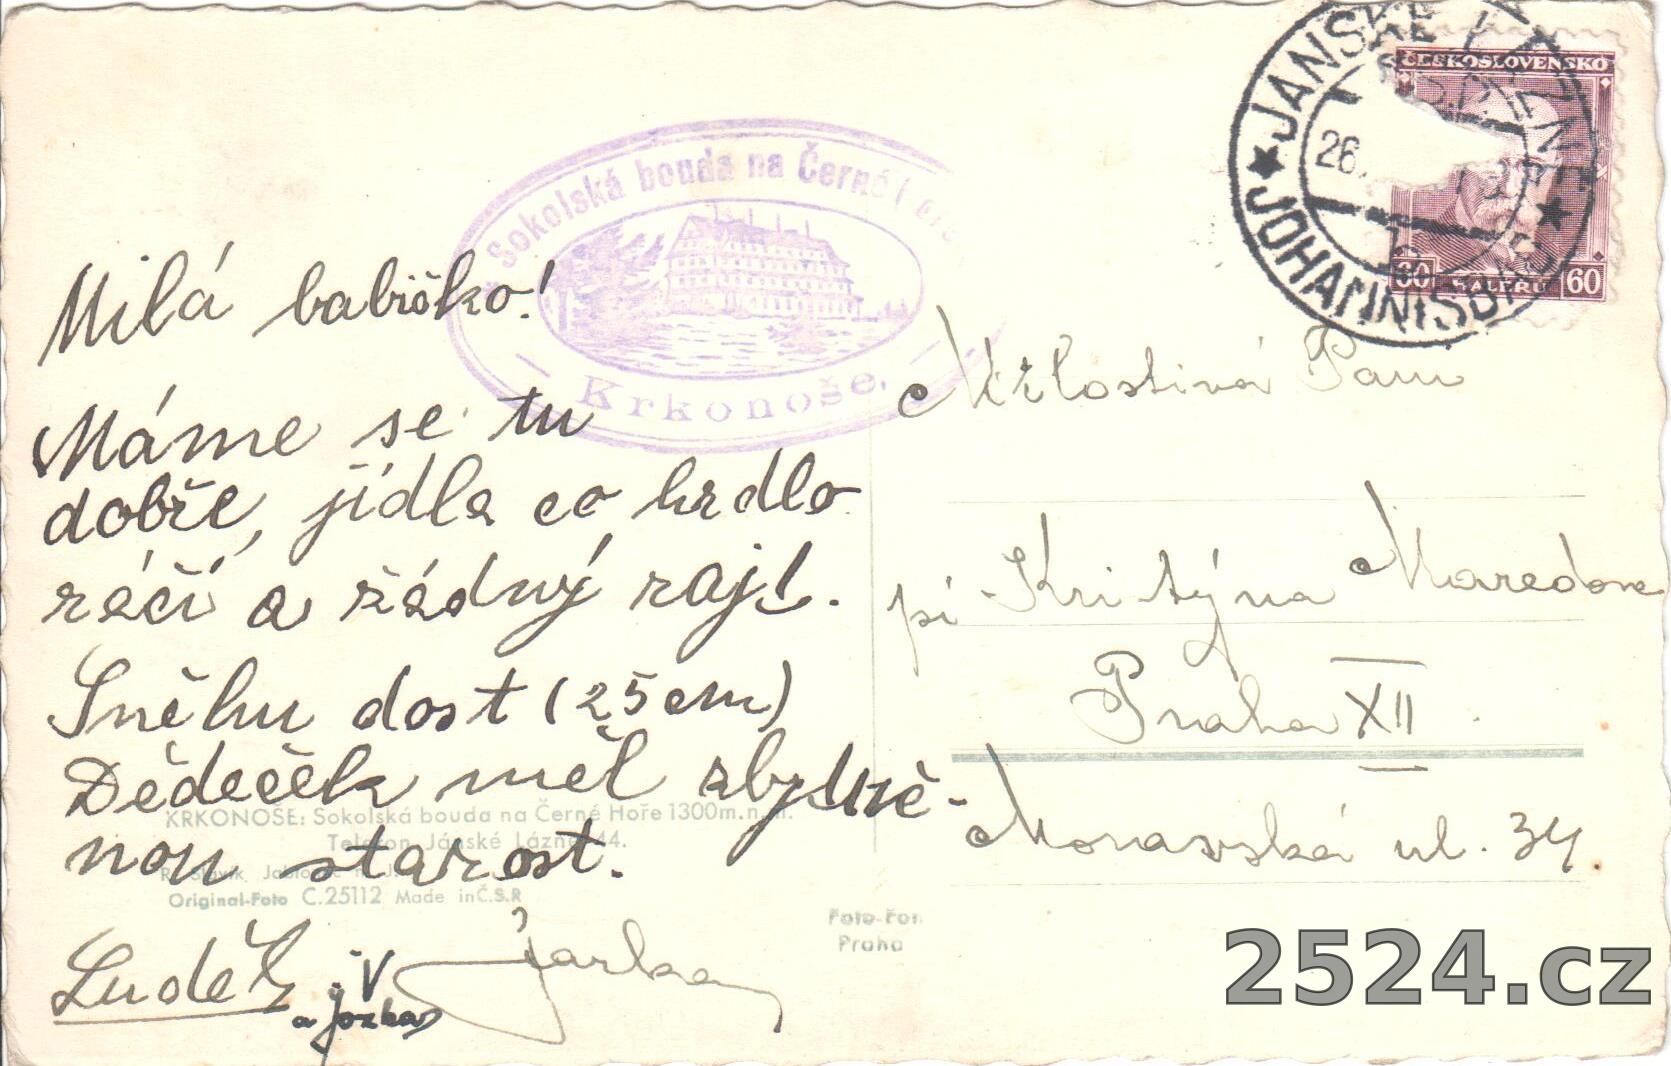 JANSKÉ LÁZNĚ
JOHANNISBAD
26.
ČESKOSLOVENSKO
60 HALÉŘŮ 60
Sokolská bouda na Černé
Krkonoše.
Milá babičko!
Máme se tu
dobře, jídla co hrdlo
ráčí a žádný rajs.
Sněhu dost (25 cm)
Dědeček měl zbytečnou
starost.
Luděk
a Jozka
Jarka
Milostivá Paní
pí Kristýna
Praha XII
Moravská ul. 34.
KRKONOŠE: Sokolská bouda na Černé Hoře 1300m.n.m.
Telefon Jánské Lázně 44.
Original-Foto C.25112 Made in Č.S.R
Foto-Fon
Praha
2524.cz